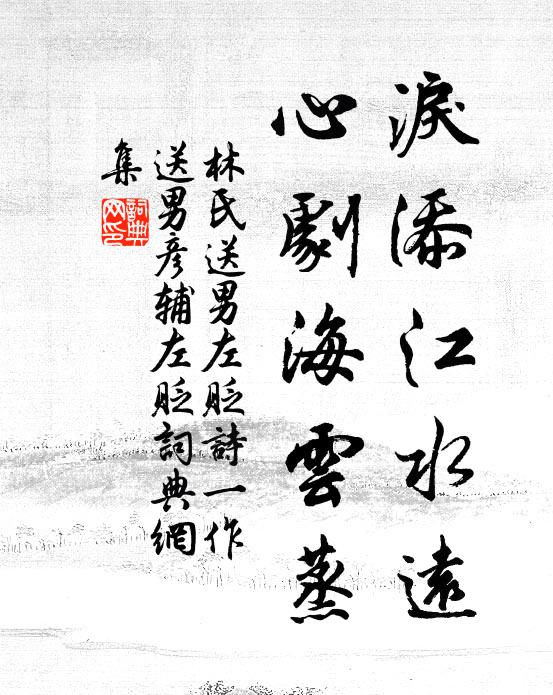 淚添江水遠
心劇海雲蒸
林氏送男左貶詩一作
送男彦輔左貶詞典網
集
詞典
网印